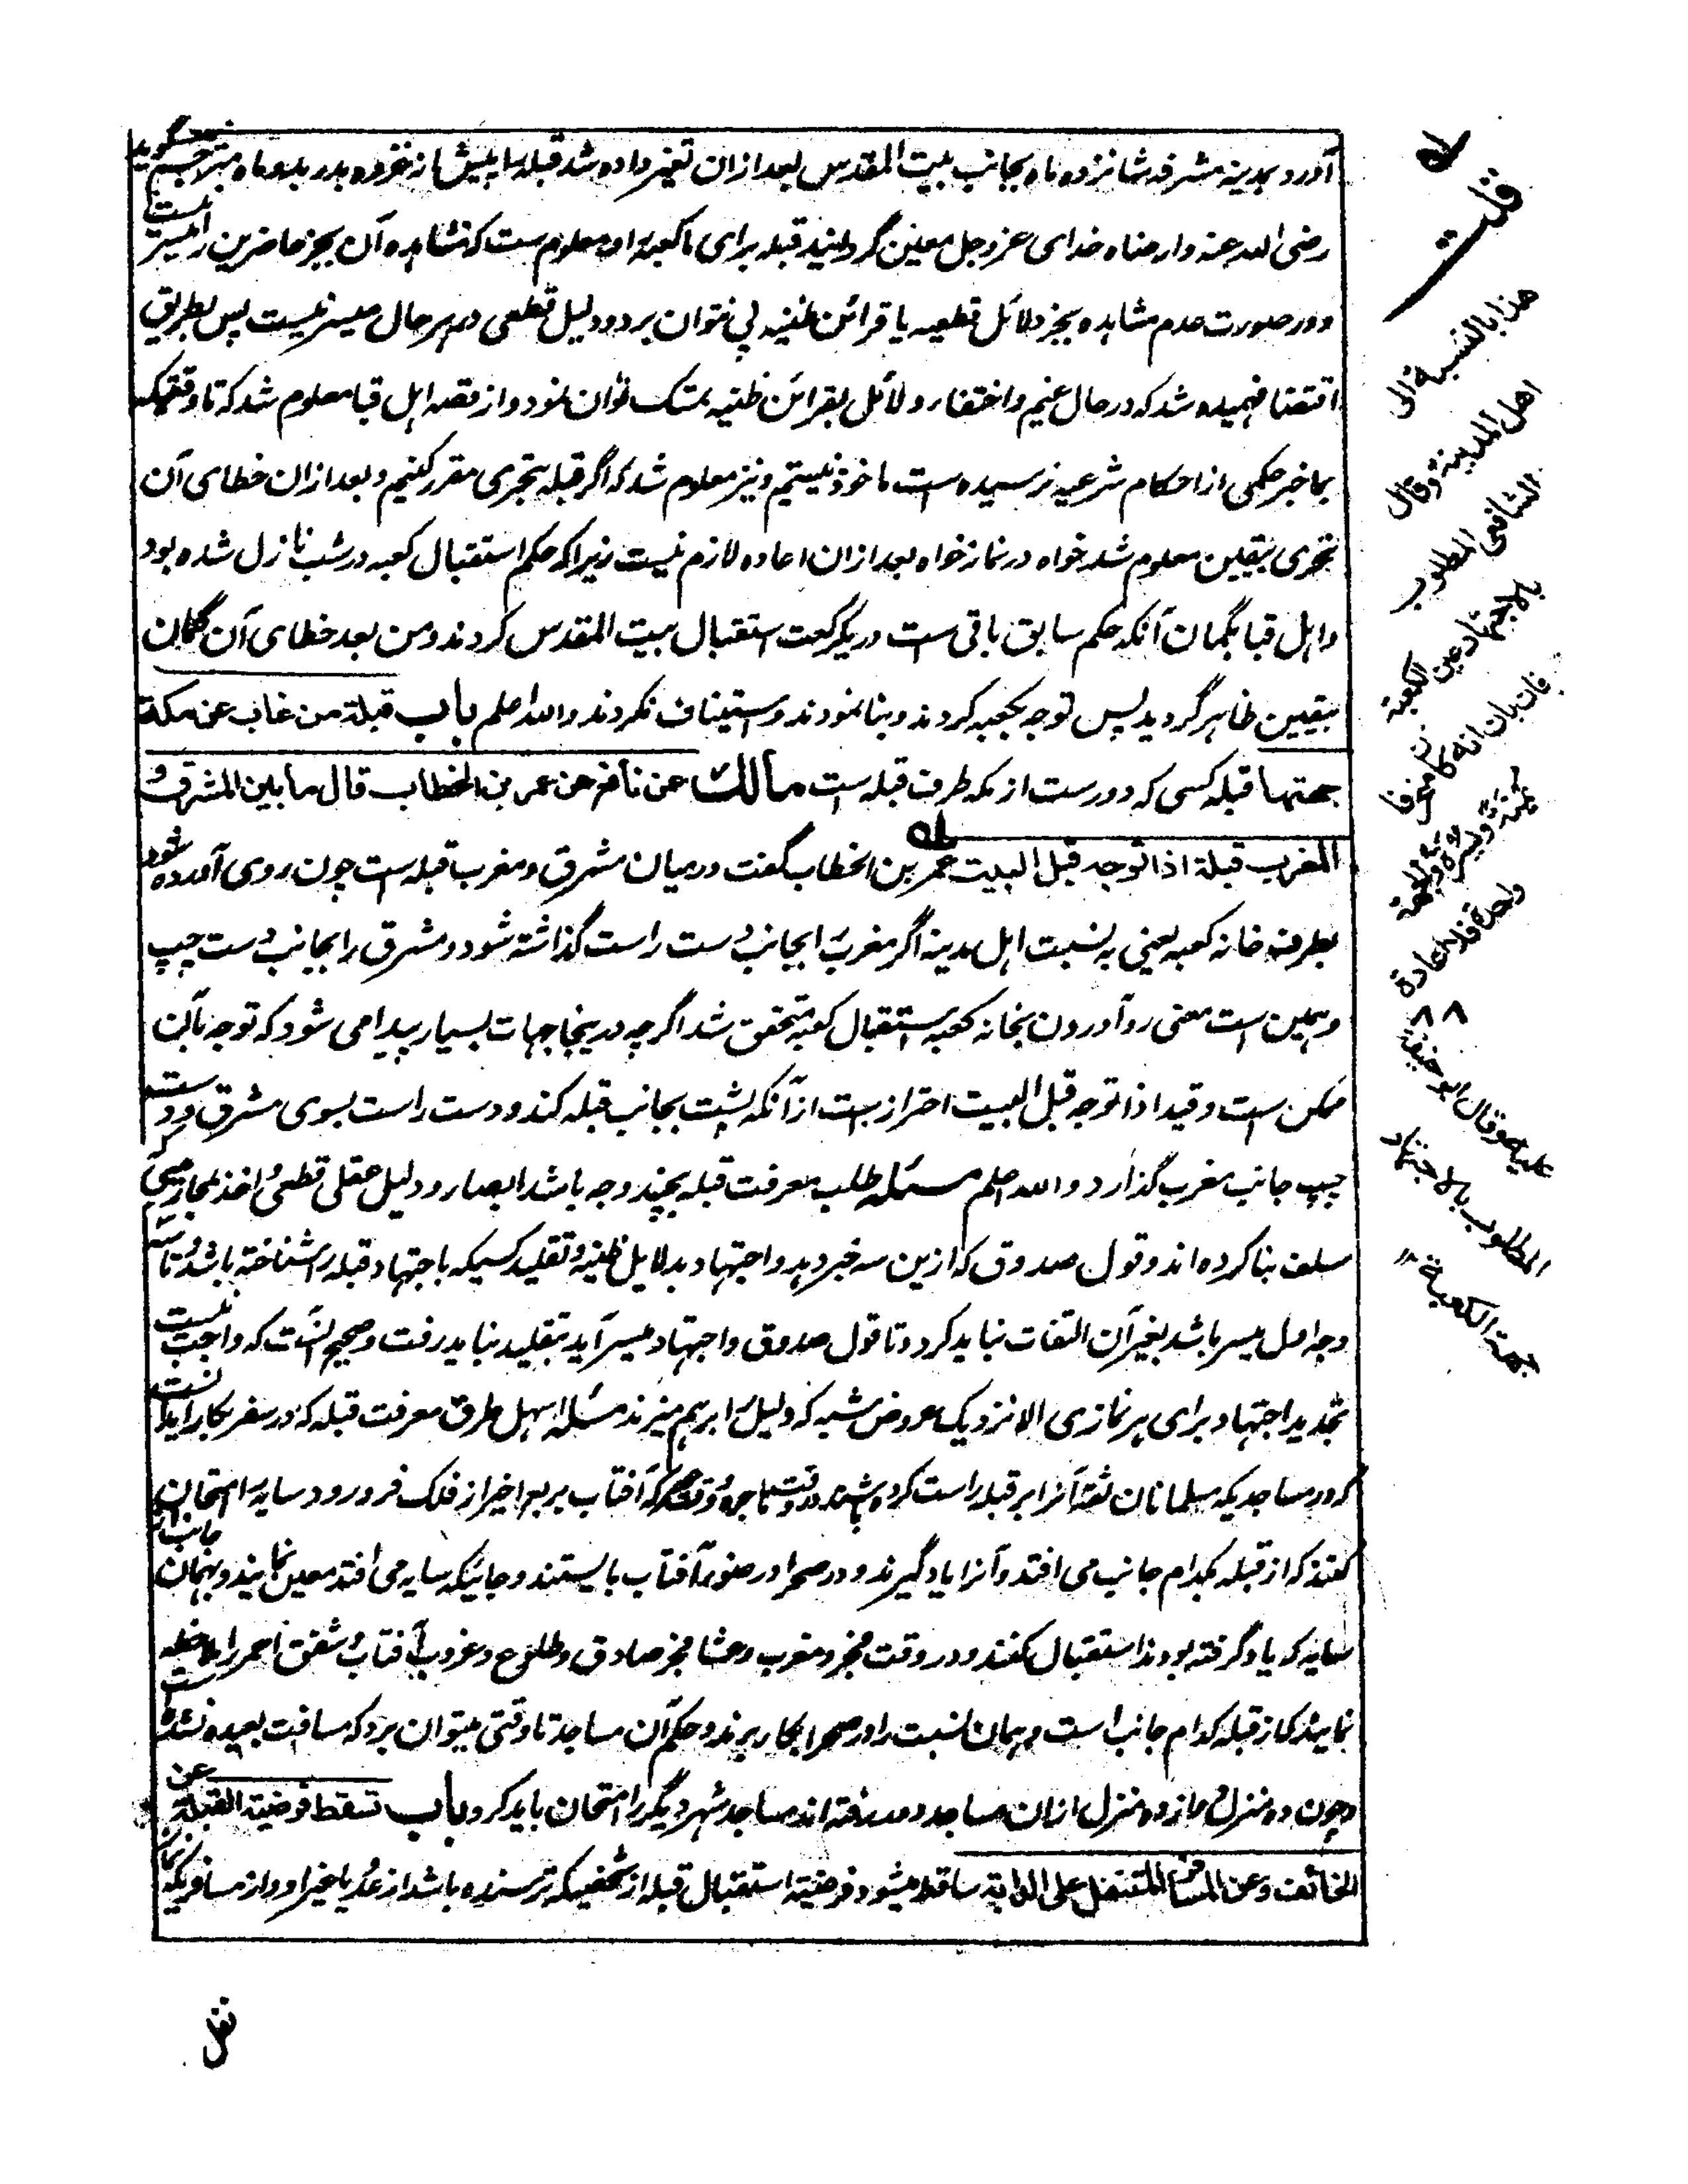 آورد بمدینه مشرفه شانزده ماه بجانب بیت المقدس بعد ازان تغیر داده شد قبله را پیش از غزوه بدر بدو ماه مترجم گوید
رضی الله عنه وارضاه خدای عزوجل معین گردانید قبله برای ما کعبه را و معلوم ست که مشاهده آن بجز حاضرین را میسر نیست
و در صورت عدم مشاهده بجز دلائل قطعیه یا قرائن ظنیه پی نتوان برد و دلیل قطعی در هر حال میسر نیست پس بطریق
اقتضا فهمیده شد که در حال غیم و اختفاء دلائل بقرائن ظنیه تمسک توان نمود و از قصه اهل قبا معلوم شد که تا وقتیکه
بما خبر حکمی از احکام شرعیه نرسیده است ماخوذ نیستیم و نیز معلوم شد که اگر قبله بتحری مقرر کنیم و بعد ازان خطای آن
تحری بیقین معلوم شد خواه در نماز خواه بعد ازان اعاده لازم نیست زیراکه حکم استقبال کعبه در شب نازل شده بود
و اهل قبا بگمان آنکه حکم سابق باقی ست در یکرکعت استقبال بیت المقدس کردند و من بعد خطای آن گمان
بیقین ظاهر گردید پس توجه بکعبه کردند و بنا نمودند و استیناف نکردند والله اعلم باب قبلة من غاب عن مکة
جهتها قبله کسی که دورست از مکه طرف قبله است مالک عن نافع عن عمر بن الخطاب قال ما بین المشرق و
المغرب قبلة اذا توجه قبل البیت عمر بن الخطاب گفت درمیان مشرق و مغرب قبله است چون روی آورده شود
بطرف خانه کعبه یعنی به نسبت اهل مدینه اگر مغرب را بجانب دست راست گذاشته شود و مشرق را بجانب دست چپ
و همین است معنی رو آوردن بخانه کعبه استقبال کعبه متحقق شد اگرچه درینجا جهات بسیار پیدا می شود که توجه بآن
ممکن ست و قید اذا توجه قبل البیت احتراز ست از آنکه پشت بجانب قبله کند و دست راست بسوی مشرق و دست
چپ جانب مغرب گذارد والله اعلم مسئله طلب معرفت قبله بچند وجه باشد ابصار و دلیل عقلی قطعی و اخذ بمحاریبی که
سلف بنا کرده اند و قول صدوق که ازین سه خبر دهد و اجتهاد بدلایل ظنیه و تقلید کسیکه باجتهاد قبله را شناخته باشد و تا
وجه اول میسر باشد بغیر آن التفات نباید کرد و تا قول صدوق و اجتهاد میسر آید بتقلید نباید رفت و صحیح آنست که واجب نیست
تجدید اجتهاد برای هر نمازی الا نزدیک عروض شبهه که دلیل را برهم میزند مسئله اسهل طرق معرفت قبله که در سفر بکار آید آنست
که در مساجدیکه مسلمانان ثقه آنرا بر قبله راست کرده باشند که آفتاب بربع اخیر از فلک فرو رود سایه را امتحان
کنند که از قبله بکدام جانب می افتد و آنرا یاد گیرند و در صحرا در ضوء آفتاب بایستند و جائیکه سایه می افتد معین نمایند و بهمان جانب از
سایه که یاد گرفته بودند استقبال کنند و در وقت فجر و مغرب و عشا فجر صادق و طلوع و غروب آفتاب و شفق احمر را ملاحظه
نمایند که از قبله کدام جانب است و همان نسبت را در صحرا بکار برند و حکم آن مساجد تا وقتی میتوان برد که مسافت بعیده نشده است
و چون ده منزل دوازده منزل ازان مساجد دور رفته اند مساجد شهر دیگر را امتحان باید کرد باب تسقط فرضیة القبلة عن
الخائف وعن المسافر المتنفل علی الدابة ساقط میشود فرضیة استقبال قبله از شخصیکه ترسنده باشد از عدو یا غیر او و از مسافریکه نماز
نفل
قلت
هذا بالنسبة الی
اهل المدینة وقال
الشافعی المطلوب
بالاجتهاد عین الکعبة
فان بان انه کان منحرفا
یمنة ویسرة والجهة
واحدة فلا اعادة
علیه وقال ابو حنیفة
المطلوب بالاجتهاد
جهة الکعبة ۱۲